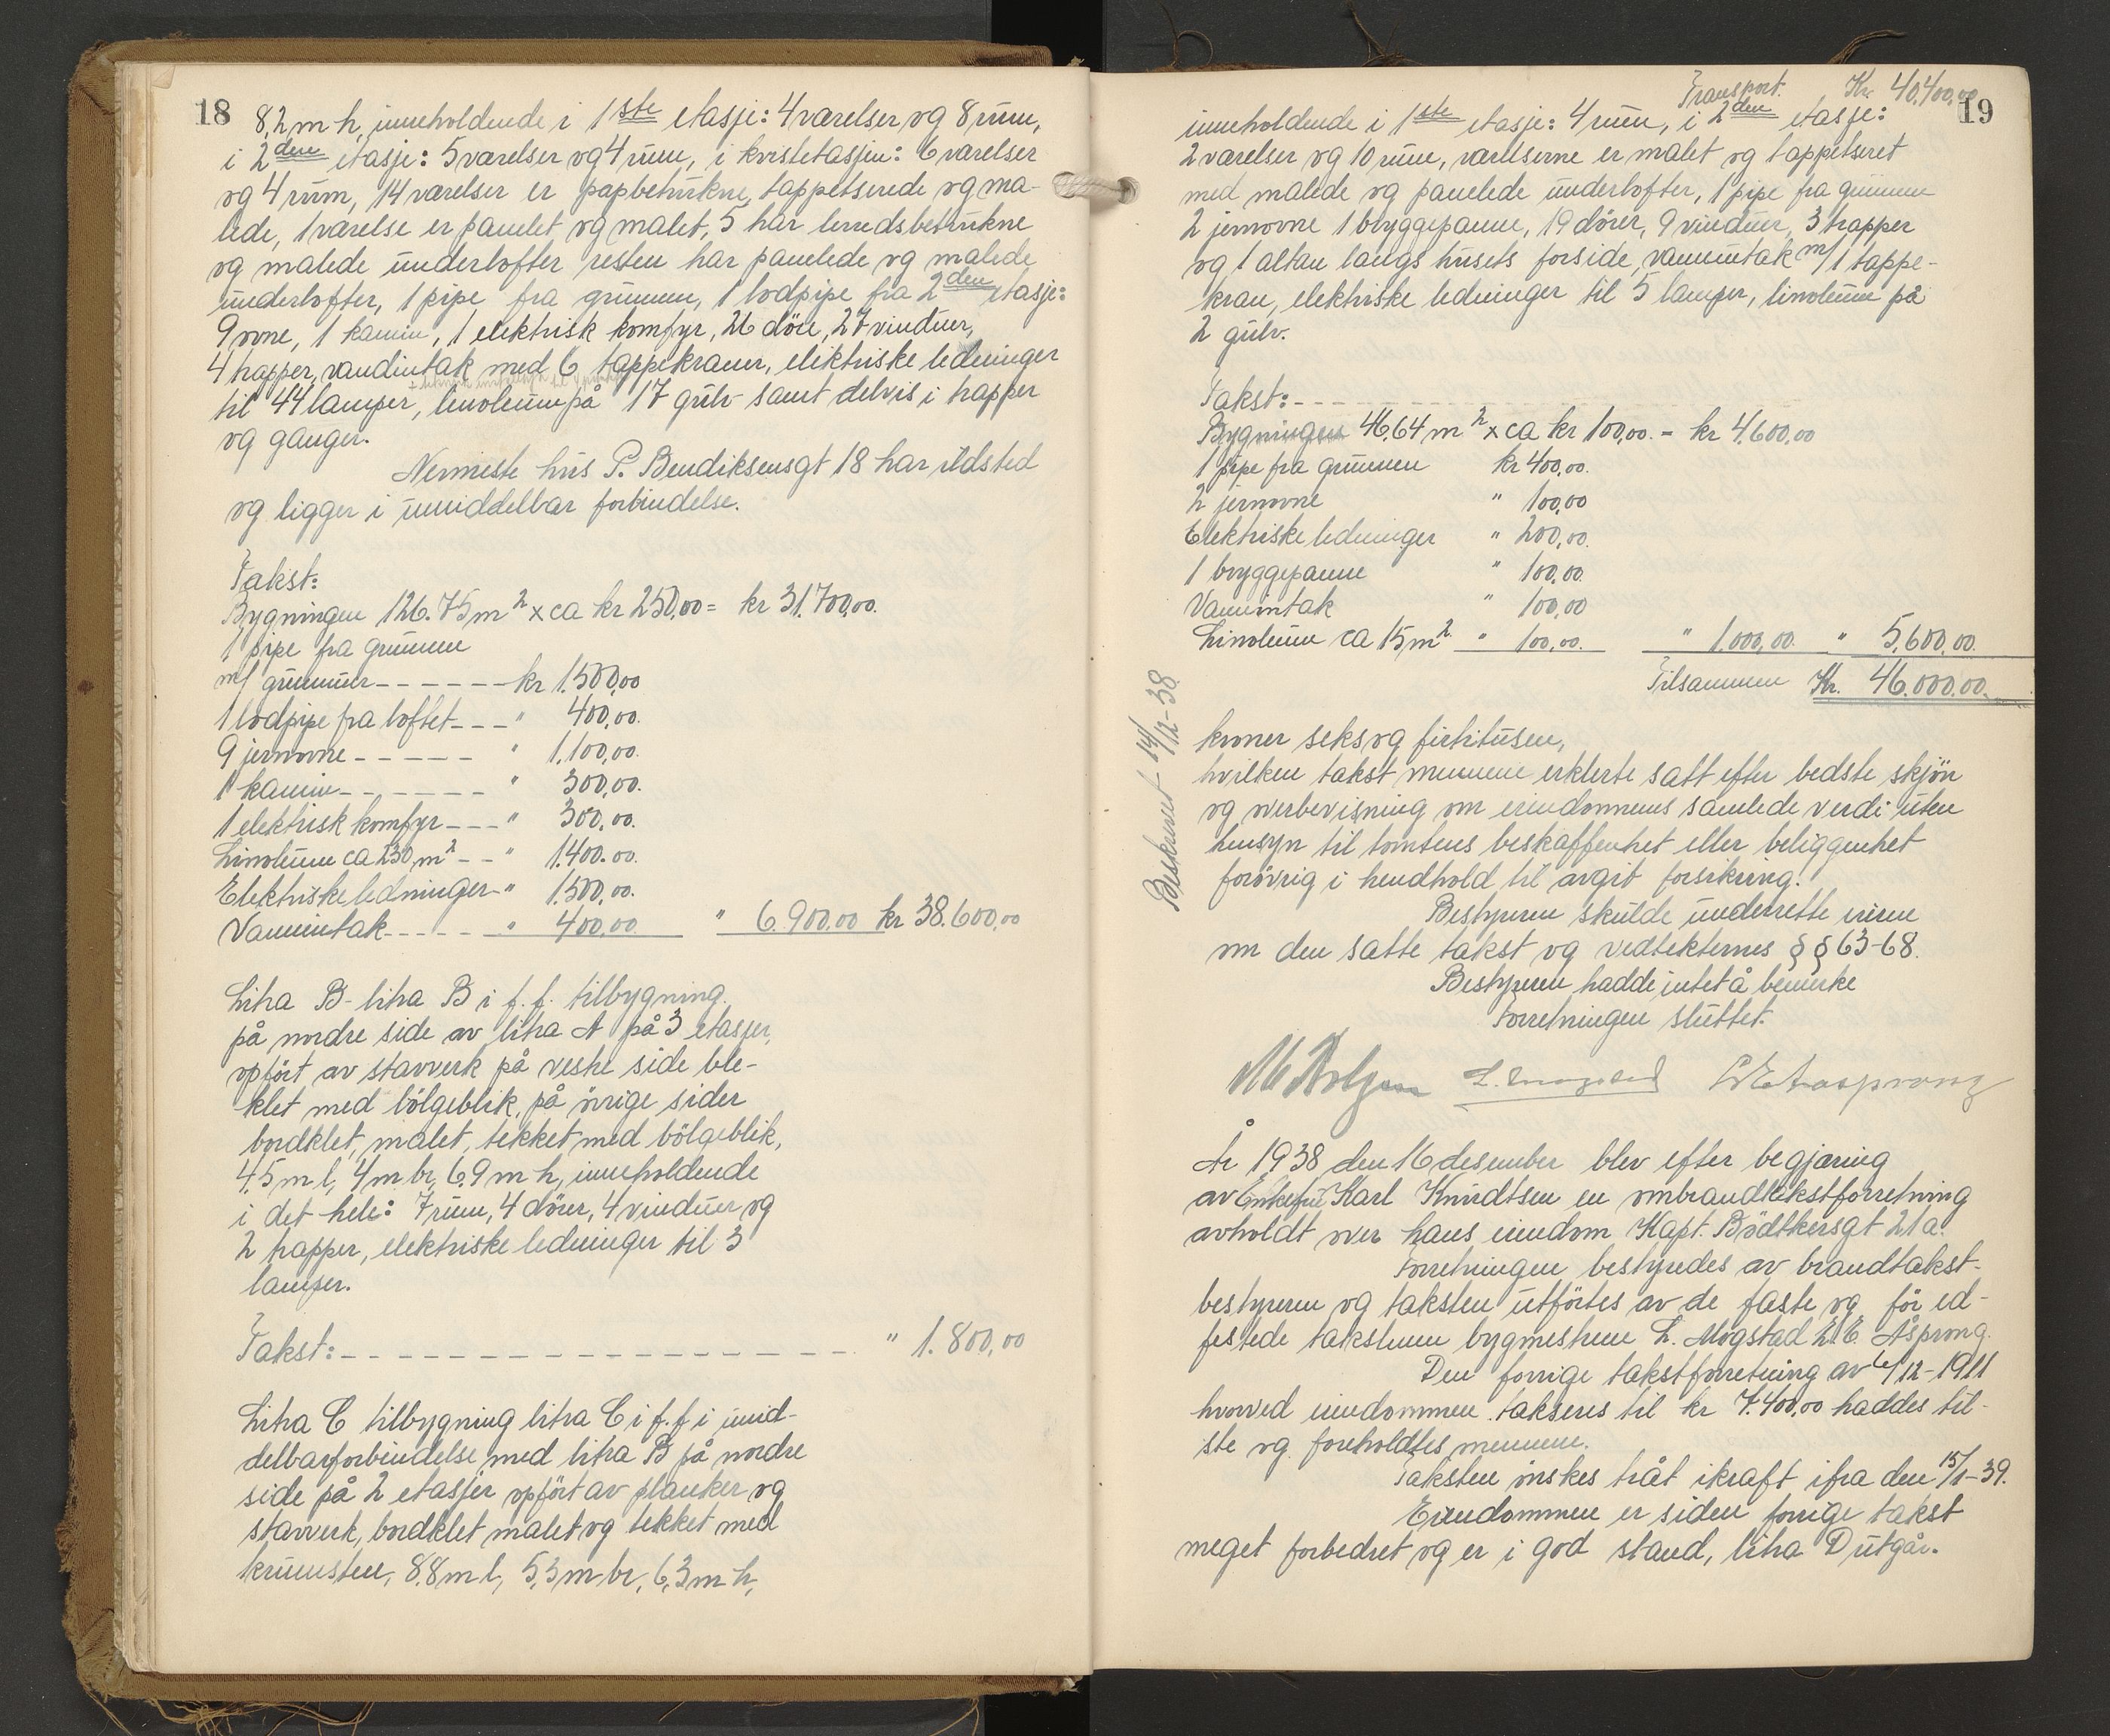 18
8,2 m h, inneholdende i 1ste etasje: 4 værelser og 8 rum,
i 2den etasje: 5 værelser og 4 rum, i kvistetasjen: 6 værelser
og 4 rum, 14 værelser er papbetrukne, tappetserede og ma-
lede, 1 værelse er panelet og malet, 5 har lerredsbetrukne
og malede underlofter resten har panelede og malede
underlofter, 1 pipe fra grunnen, 1 lodpipe fra 2den etasje:
9 ovne, 1 kamin, 1 elektrisk komfyr, 26 döre, 27 vinduer,
4 trapper, vandintak med 6 tappekraner, elektriske ledninger
til 44 lamper, linoleum på 17 gulv samt delvis i trapper
og ganger.
Nermeste hus P. Bendiksensgt 18 har ildsted
og ligger i umiddelbar forbindelse.
Takst:
Bygningen 126.75 m2 x ca kr 250,00 = kr 31.700,00.
1 pipe fra grunnen
m/ grunnur - - - - - - - kr 1.500,00
1 lodpipe fra loftet - - - " 400,00.
9 jernovne - - - - - " 1.100,00.
1 kamin - - - - - - - " 300,00.
1 elektrisk komfyr - - - " 300,00.
Linoleum ca 230 m2 - - " 1.400.00.
Elektriske ledninger - " 1.500,00.
Vannintak - - - - - " 400,00 " 6.900,00 kr 38.600,00
Litra B - litra B i f. f. tilbygning
på nordre side av litra A på 3 etasjer,
opfört av stavverk på vestre side ble-
klet med bölgeblik, på övrige sider
bordklet, malet, tekket med bölgeblik,
4,5 m l, 4 m br, 6,9 m h, inneholdende
i det hele: 7 rum, 4 dörer, 4 vinduer og
2 trapper, elektriske ledninger til 3
lamper.
Takst: - - - - - - - - - - - - - - - - - " 1.800,00
Litra C tilbygning litra C i f. f i umid-
delbar forbindelse med litra B på nordre
side på 2 etasjer opfört av planker og
stavverk, bordklet malet og tekket med
krumsten, 8,8 m l, 5,3 m br, 6,3 m h,
Transport. Kr. 40.400,00
19
inneholdende i 1ste etasje: 4 rum, i 2den etasje:
2 værelser og 10 rum, værelserne er malet og tappetseret
med malede og panelede underlofter, 1 pipe fra grunnen
2 jernovne 1 bryggepanne, 19 dörer, 9 vinduer, 3 trapper
og 1 altan langs husets forside, vannintak m/1 tappe-
kran, elektriske ledninger til 5 lamper, linoleum på
2 gulv.
Takst: - - -
Bygningen 46,64 m2 x ca kr 100,00. = kr 4.600,00
1 pipe fra grunnen kr 400,00.
2 jernovne " 100,00
Elektriske ledninger " 200,00.
1 bryggepanne " 100,00
Vannintak " 100,00
Linoleum ca 15 m2 " 100,00. " 1.000,00. " 5.600,00.
Tilsammen Kr. 46.000,00.
Beskrevet 14/12-38.
kroner seks og firtitusen,
hvilken takst mennene erklerte satt efter bedste skjön
og overbevisning om eiendommens samlede verdi uten
hensyn til tomtens beskaffenhet eller beliggenhet
forövrig i hendhold til avgit forsikring.
Bestyreren skulde underrette eieren
om den satte takst og vedtekternes § § 63-68.
Bestyreren hadde intet å bemerke
Forretningen sluttet.
L. Mogstad
År 1938 den 16 desember blev efter begjæring
av Enkefru Karl Knudtsen en ombrandtakstforretning
avholdt over hans eiendom Kapt. Bödtkersgt 21a.
Forretningen bestyredes av brandtakst-
bestyreren og taksten utförtes av de faste og för ed-
festede takstmenn bygmestrene L. Mogstad L. E. Åsprong.
Den forrige takstforretning av 6/12-1911
hvorved eiendommen takseres til kr 7.400,00 haddes til-
ste og foreholdtes mennene.
Taksten önskes tråt ikraft ifra den 15/1-39.
Eiendommen er siden forrige takst
meget forbedret og er i god stand, litra D utgår.